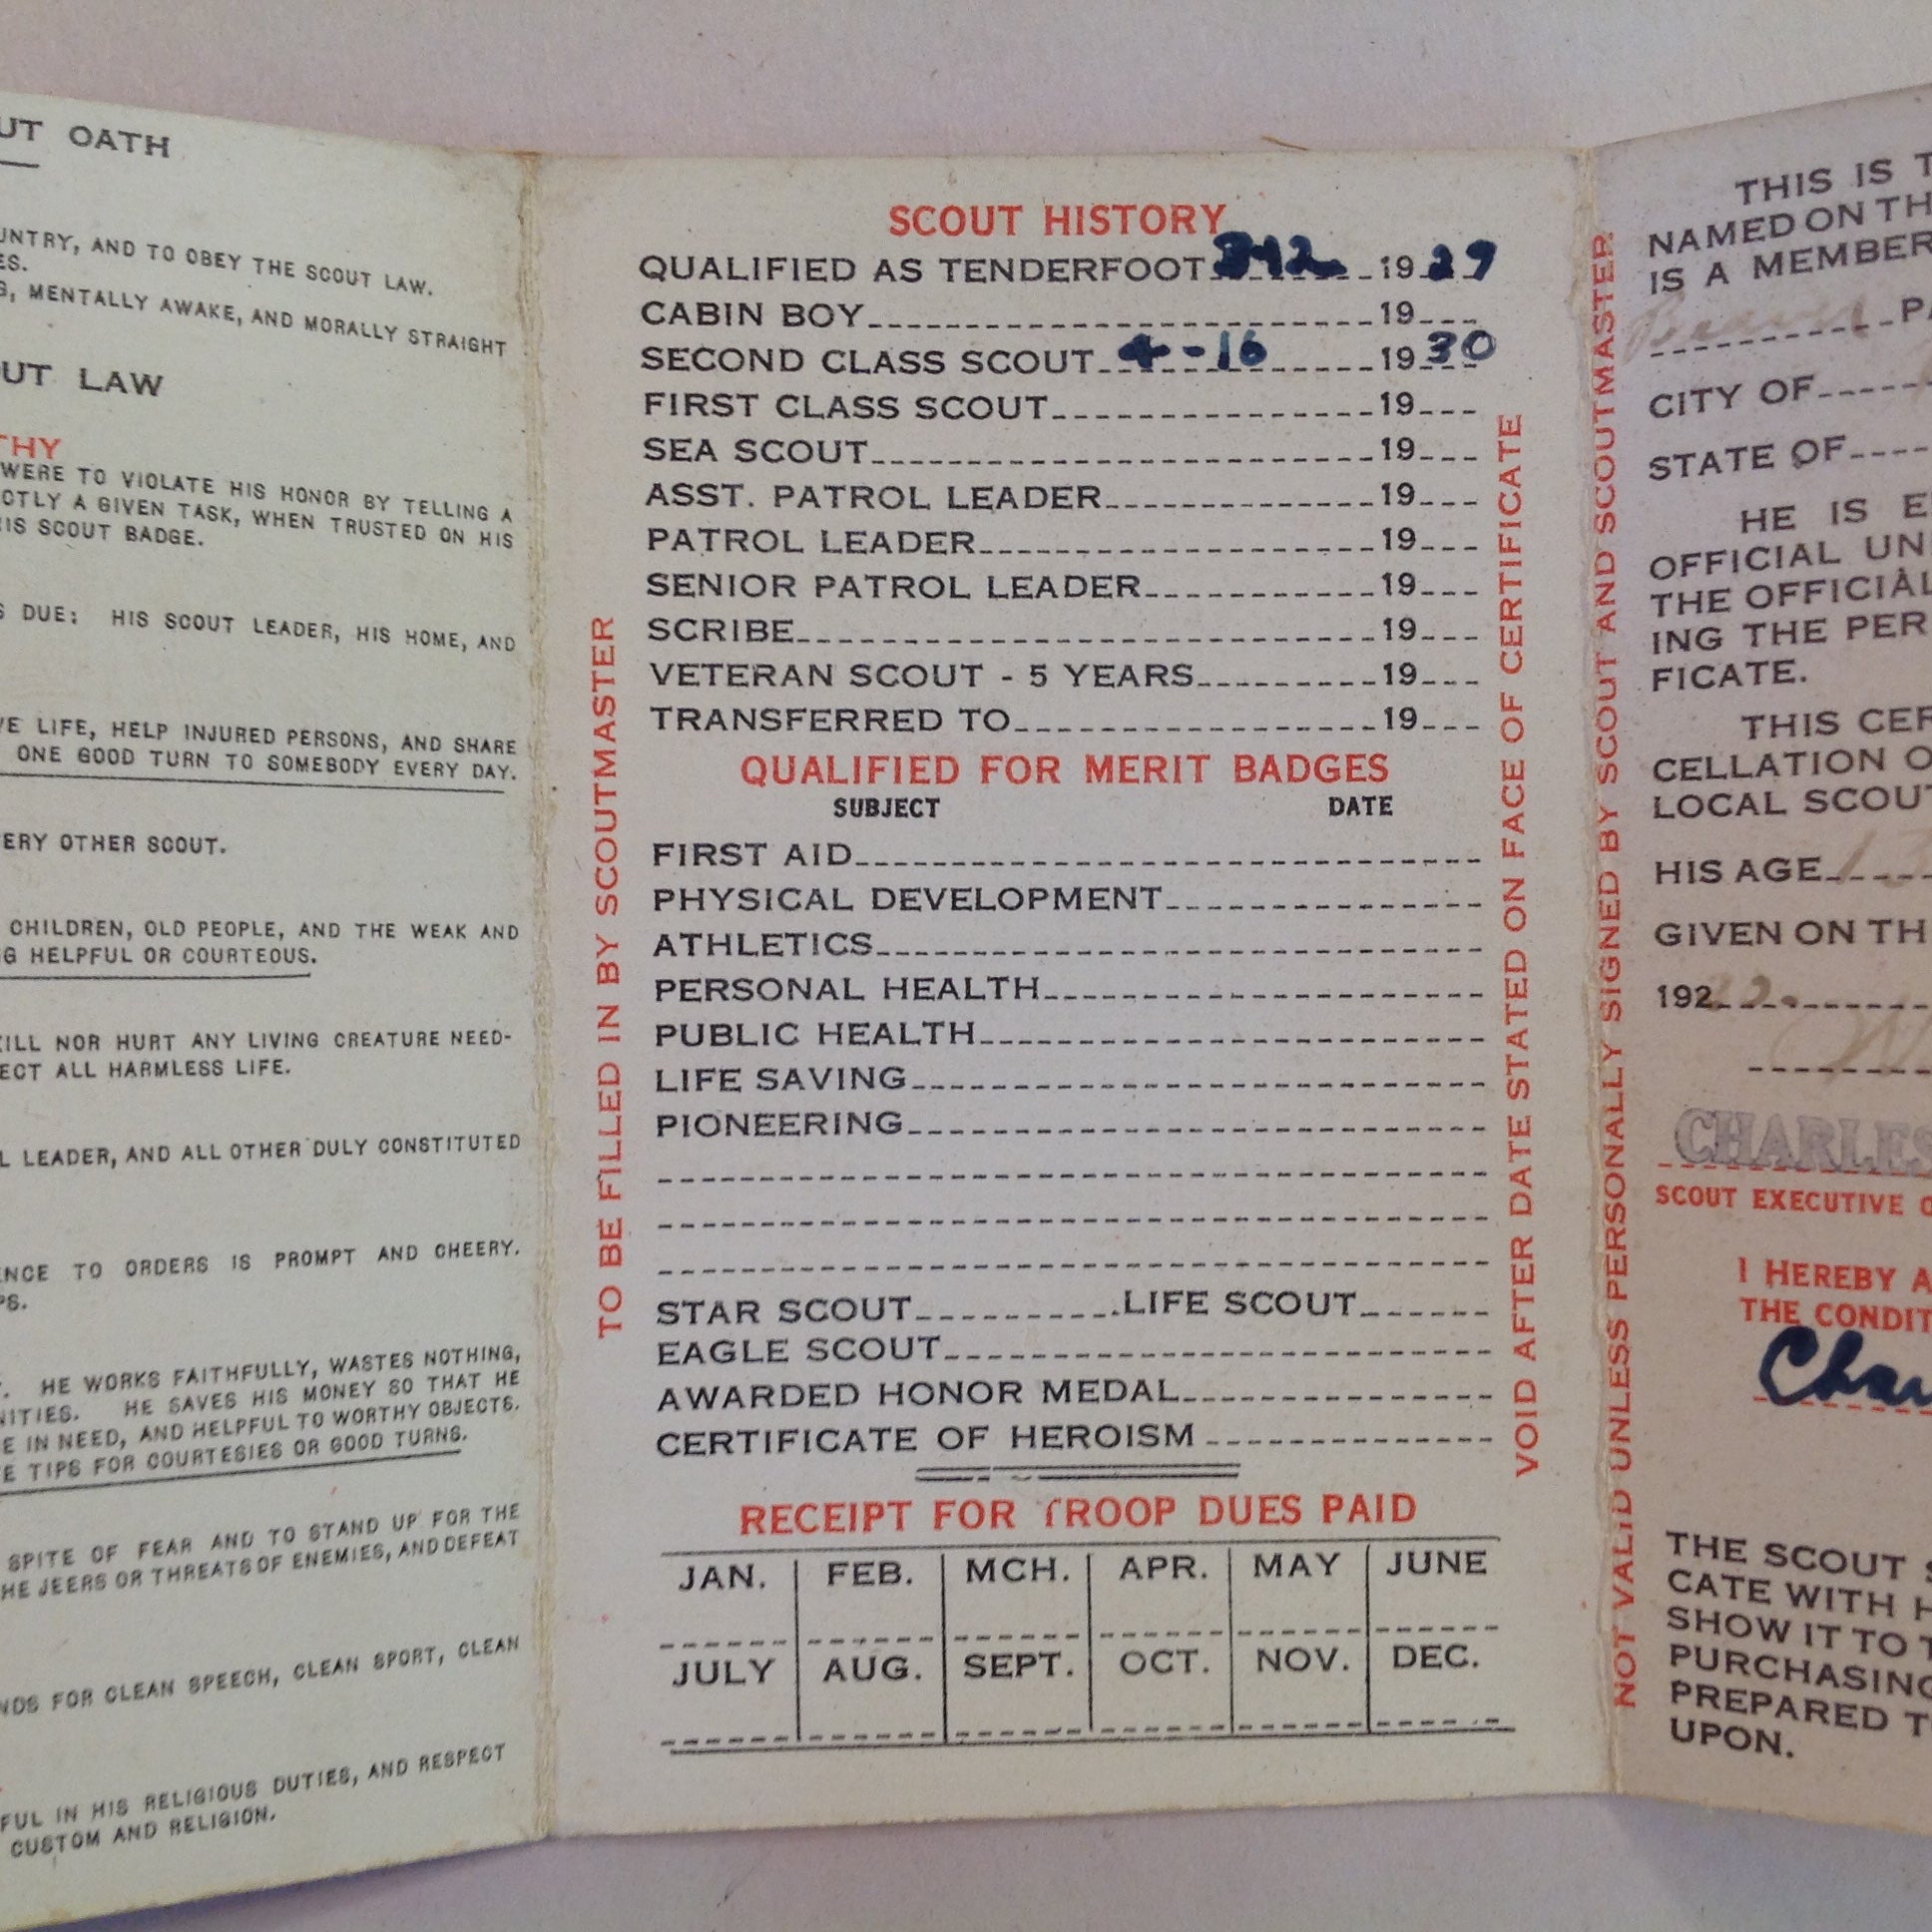 UT OATH
UNTRY, AND TO OBEY THE SCOUT LAW.
ES.
G, MENTALLY AWAKE, AND MORALLY STRAIGHT
UT LAW
THY
WERE TO VIOLATE HIS HONOR BY TELLING A
CTLY A GIVEN TASK, WHEN TRUSTED ON HIS
IS SCOUT BADGE.
S DUE: HIS SCOUT LEADER, HIS HOME, AND
VE LIFE, HELP INJURED PERSONS, AND SHARE
ONE GOOD TURN TO SOMEBODY EVERY DAY.
ERY OTHER SCOUT.
CHILDREN, OLD PEOPLE, AND THE WEAK AND
G HELPFUL OR COURTEOUS.
KILL NOR HURT ANY LIVING CREATURE NEED-
ECT ALL HARMLESS LIFE.
L LEADER, AND ALL OTHER DULY CONSTITUTED
ENCE TO ORDERS IS PROMPT AND CHEERY.
PS.
HE WORKS FAITHFULLY, WASTES NOTHING,
NITIES. HE SAVES HIS MONEY SO THAT HE
E IN NEED, AND HELPFUL TO WORTHY OBJECTS.
E TIPS FOR COURTESIES OR GOOD TURNS.
SPITE OF FEAR AND TO STAND UP FOR THE
HE JEERS OR THREATS OF ENEMIES, AND DEFEAT
NDS FOR CLEAN SPEECH, CLEAN SPORT, CLEAN
FUL IN HIS RELIGIOUS DUTIES, AND RESPECT
CUSTOM AND RELIGION.
TO BE FILLED IN BY SCOUTMASTER
SCOUT HISTORY
QUALIFIED AS TENDERFOOT 1929
CABIN BOY 19
SECOND CLASS SCOUT 4-16 1930
FIRST CLASS SCOUT 19
SEA SCOUT 19
ASST. PATROL LEADER 19
PATROL LEADER 19
SENIOR PATROL LEADER 19
SCRIBE 19
VETERAN SCOUT - 5 YEARS 19
TRANSFERRED TO 19
QUALIFIED FOR MERIT BADGES
SUBJECT DATE
FIRST AID
PHYSICAL DEVELOPMENT
ATHLETICS
PERSONAL HEALTH
PUBLIC HEALTH
LIFE SAVING
PIONEERING
STAR SCOUT LIFE SCOUT
EAGLE SCOUT
AWARDED HONOR MEDAL
CERTIFICATE OF HEROISM
RECEIPT FOR TROOP DUES PAID
JAN. FEB. MCH. APR. MAY JUNE
JULY AUG. SEPT. OCT. NOV. DEC.
VOID AFTER DATE STATED ON FACE OF CERTIFICATE
NOT VALID UNLESS PERSONALLY SIGNED BY SCOUT AND SCOUTMASTER
THIS IS T
NAMED ON TH
IS A MEMBER
PA
CITY OF
STATE OF
HE IS E
OFFICIAL UN
THE OFFICIAL
ING THE PER
FICATE.
THIS CER
CELLATION O
LOCAL SCOUT
HIS AGE 13
GIVEN ON TH
192
CHARLES
SCOUT EXECUTIVE O
I HEREBY A
THE CONDIT
Char
THE SCOUT S
CATE WITH H
SHOW IT TO T
PURCHASING
PREPARED T
UPON.